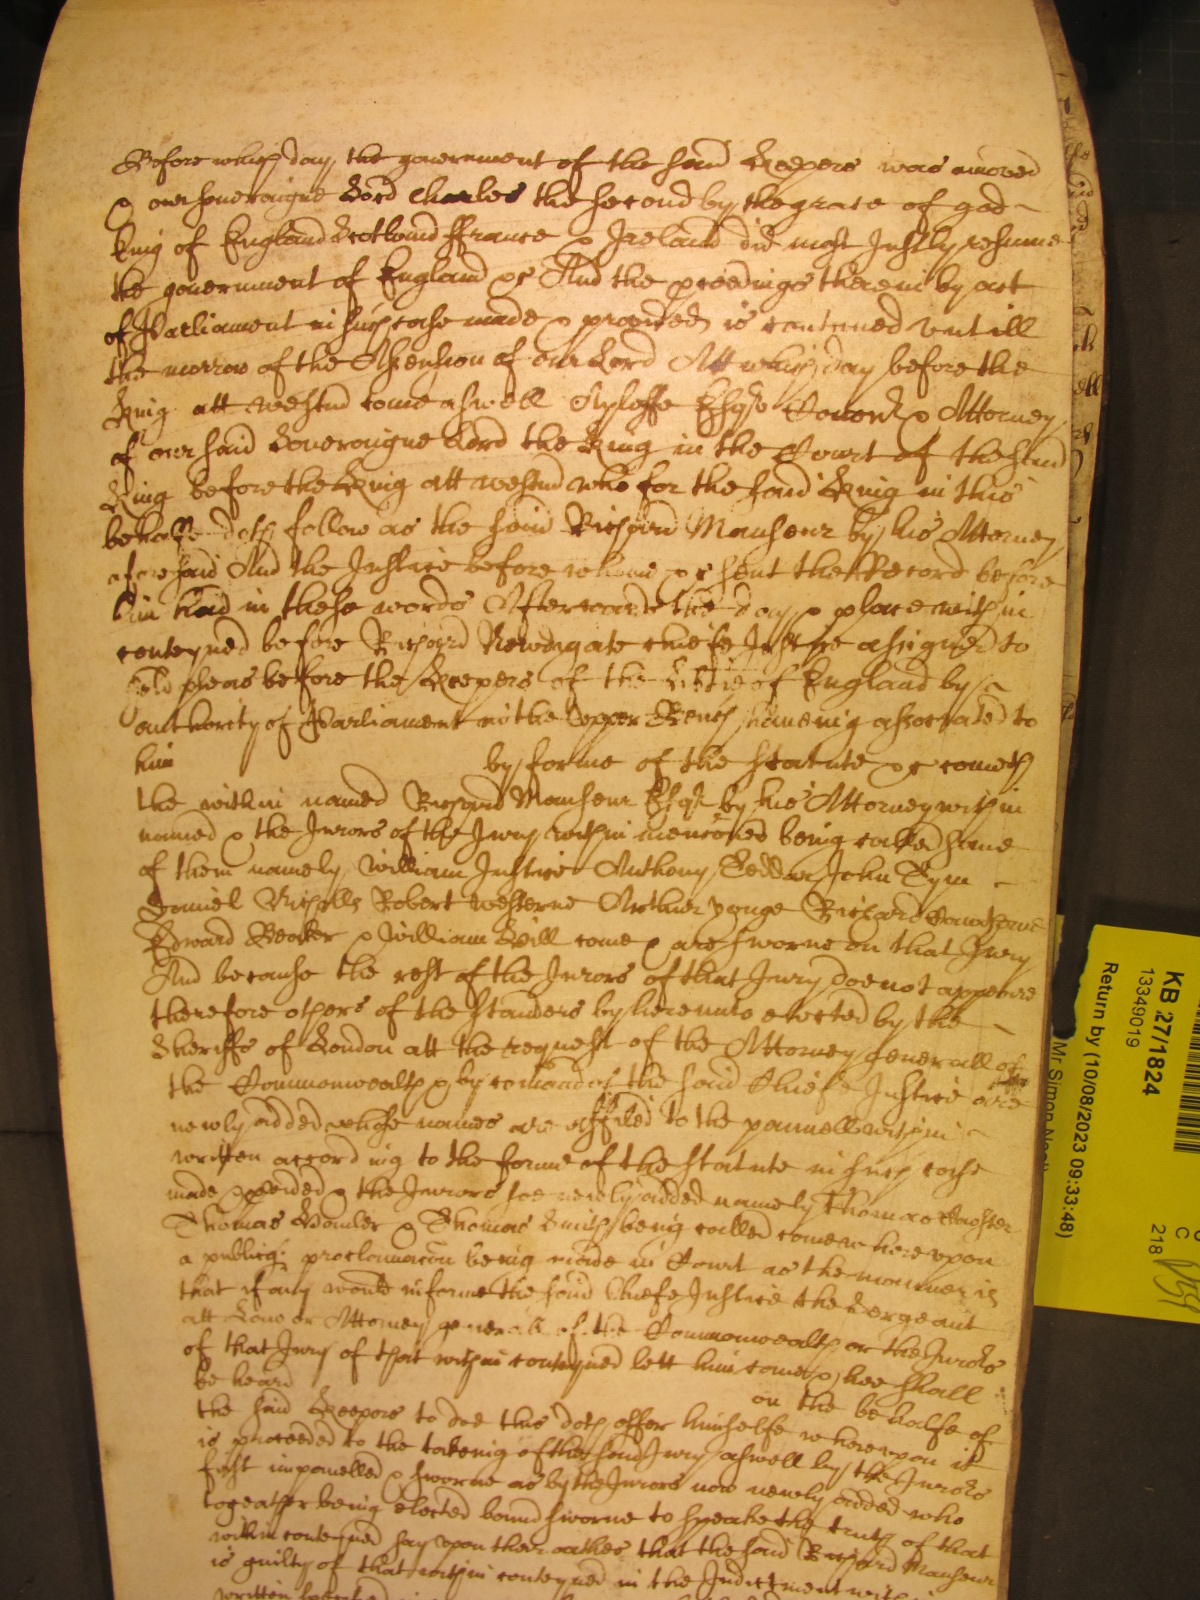 Before which day the gouernment of the said Keepers was amoved
& our soueraigne Lord Charles the second by the grace of god
king of England Scotland ffrance & Ireland did most Justly resume
the gouernment of England &c And the proceedings therein by act
of Parliament in such case made & provided is contenued untill
the morrow of the Ascension of our Lord Att which day before the
King att westm come aswell Ayloffe Esqr Coroner & Attorney
of our said Soueraigne Lord the King in the Court of the said
King before the King att westm who for the said King in this
behalfe doth follow as the said Richard Manseur by his Attorney
aforesaid And the Justice before whome &c sent the Record before
him had in these words Afterwards the day & place within
conteyned before Richard Newdigate cheife Justice assigned to
hold pleas before the Keepers of the Libtie of England by
authority of Parliament in the upper Bench haueing associated to
him by forme of the statute &c cometh
the within named Richard Manseur Esqr by his Attorney within
named & the Jurors of the Jury within mencioned being called some
of them namely William Justice Anthony Tedder John Tym
Daniel Nicholls Robert westerne Arthur yonge Richard
Edward Becker & William Hill come & are sworne on that Jury
And because the rest of the Jurors of that Jury doe not appeare
therefore others of the standers by hereunto elected by the
Sheriffs of London att the request of the Attorney generall of
the Commonwealth & by comand of the said Chiefe Justice are
newly added whose names are affiled to the pannell within
written according to the forme of the statute in such case
made & pvided & the Jurors soe newly added namely Thomas
Thomas Bowler & Thomas Smith being called come whereupon
a publiq proclamacon being made in Court as the manner is
that if any would informe the said Chiefe Justice the Sergeant
att Law or Attorney generall of the Commonwealth or the Jurors
of that Jury of that within conteyned lett him come & hee shall
be heard on the behalfe of
the said Keepers to doe this doth offer himselfe whereupon it
is proceeded to the takeing of the said Jury aswell by the Jurors
first impanelled & sworne as by the Jurors now newly added who
togeather being elected bound sworne to speake the truth of that
within conteyned say upon their oathes that the said Richard Manseur
is guilty of that within conteyned in the Indictment within
written
KB 27/1824
13349019
Return by (10/08/2023 09:33:48)
Mr Simon
C
218